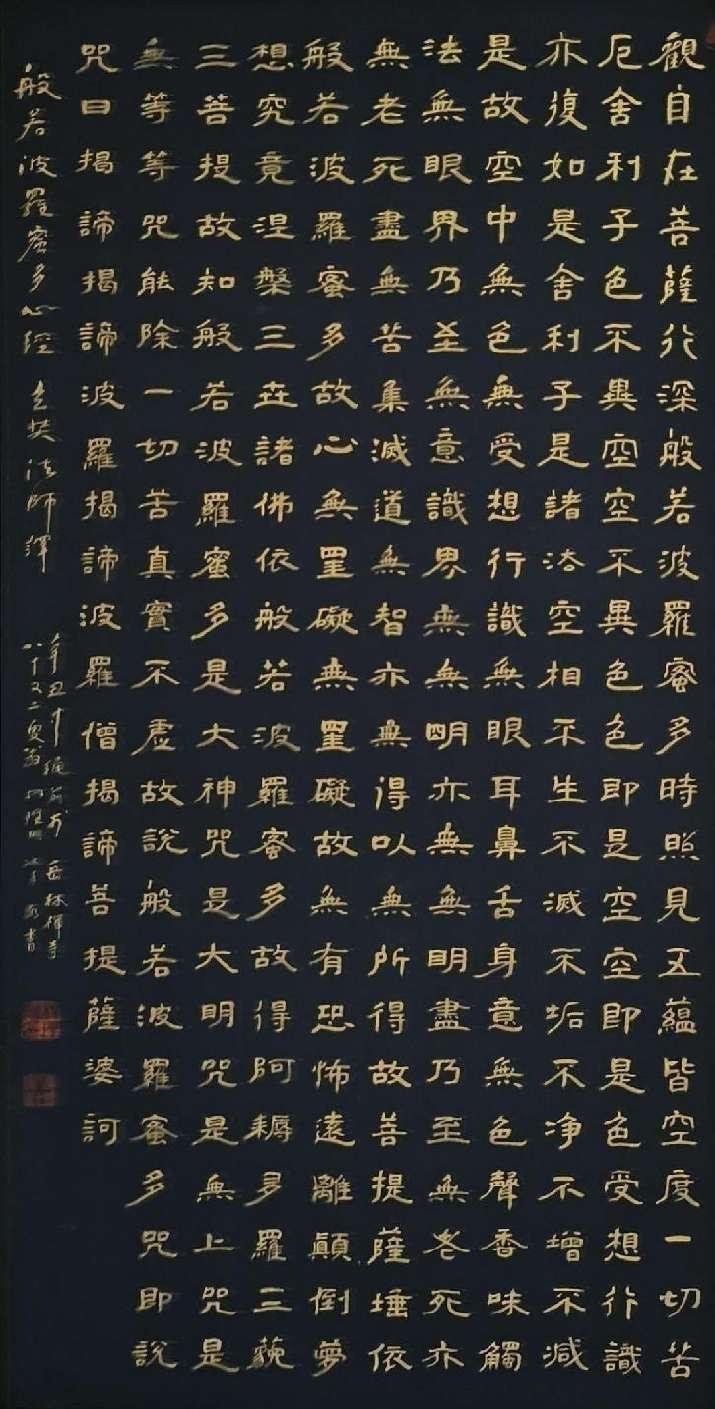 觀自在菩薩行深般若波羅蜜多時照見五蘊皆空度一切苦
厄舍利子色不異空空不異色色即是空空即是色受想行識
亦復如是舍利子是諸法空相不生不滅不垢不净不增不減
是故空中無色無受想行識無眼耳鼻舌身意無色聲香味觸
法無眼界乃至無意識界無無明亦無無明盡乃至無老死亦
無老死盡無苦集滅道無智亦無得以無所得故菩提薩埵依
般若波羅蜜多故心無罣礙無罣礙故無有恐怖遠離顛倒夢
想究竟涅槃三世諸佛依般若波羅蜜多故得阿耨多羅三藐
三菩提故知般若波羅蜜多是大神咒是大明咒是無上咒是
無等等咒能除一切苦真實不虛故說般若波羅蜜多咒即說
咒曰揭諦揭諦波羅揭諦波羅僧揭諦菩提薩婆訶
般若波羅蜜多心經 玄奘法師譯
辛丑 岳林禪寺
八十又二叟 書